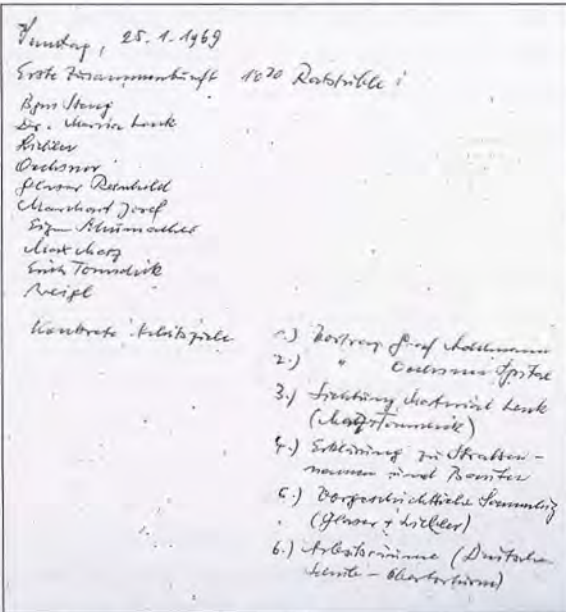 25.1.1969
Erste Zusammenkunft 10 30 Ratstüble:
Bgm Stenz
Dr. Maria Lenk
Liebler
Oechsner
Glaser Reinhold
Marchart Josef
Eigen Schumacher
Max Matz
Erich Tomschik
Weigl
Konkrete Arbeitsziele
1.) Vortrag Graf Adelmann
2.) " Oechsner Spital
3.) Sichtung Material Lenk
(Matz, Tomschik)
4.) Erklärung zu Straßen-
namen und Bauten
5.) Vorgeschichtliche Sammlung
(Glaser + Liebler)
6.) Arbeitsräume (Deutsche
Schule – Obertorturm)